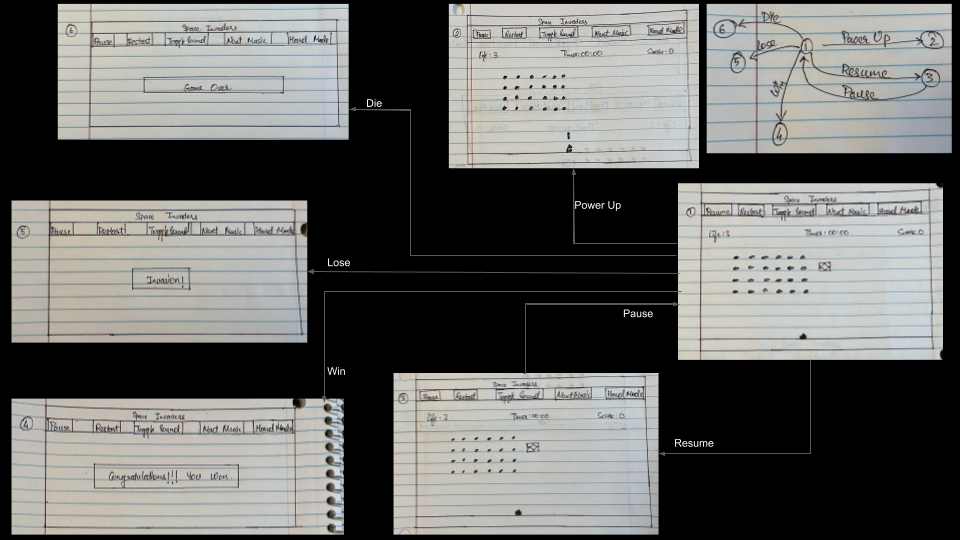 6
Space Invaders
Pause Restart Toggle Sound Next Music Hard Mode
Game Over
Die
2
Space Invaders
Pause Restart Toggle Sound Next Music Hard Mode
Life: 3 Timer: 00:00 Score: 0
Power Up
6 Die
5 Lose 1 Power Up 2
Resume 3
Win Pause
4
1
Space Invaders
Resume Restart Toggle Sound Next Music Hard Mode
Life: 3 Timer: 00:00 Score: 0
5
Space Invaders
Pause Restart Toggle Sound Next Music Hard Mode
Invasion!
Lose
Pause
Win
3
Space Invaders
Pause Restart Toggle Sound Next Music Hard Mode
Life: 3 Timer: 00:00 Score: 0
Resume
4
Space Invaders
Pause Restart Toggle Sound Next Music Hard Mode
Congratulations!!! You Won.